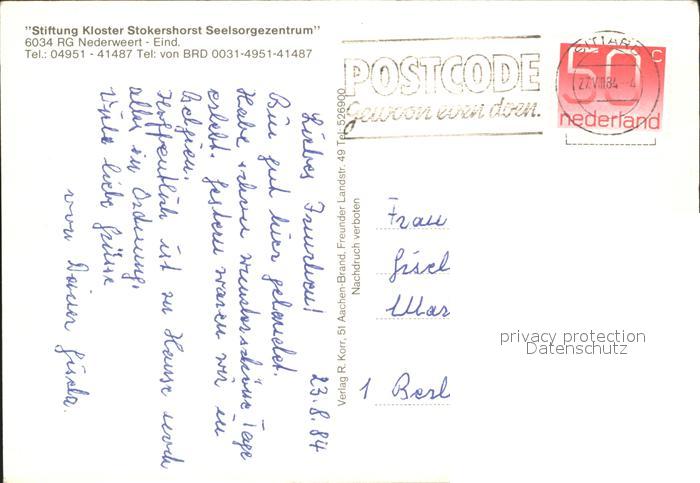 "Stiftung Kloster Stokershorst Seelsorgezentrum"
6034 RG Nederweert - Eind.
Tel.: 04951 - 41487 Tel: von BRD 0031-4951-41487
23.8.84
Liebes
Bin gut hier gelandet.
Habe schon wunderschöne Tage
erlebt. Gestern waren wir in
Belgien.
Hoffentlich ist zu Hause noch
alles in Ordnung.
Viele liebe Grüsse
von Deiner Gisela.
Verlag R. Korr, 51 Aachen-Brand, Freunder Landstr. 49 Tel. 526900
Nachdruck verboten
POSTCODE
gewoon even doen.
SITTARD
27.VIII.84 - 4
50 c
nederland
Frau
Gisel
Mar
1 Berl
privacy protection
Datenschutz